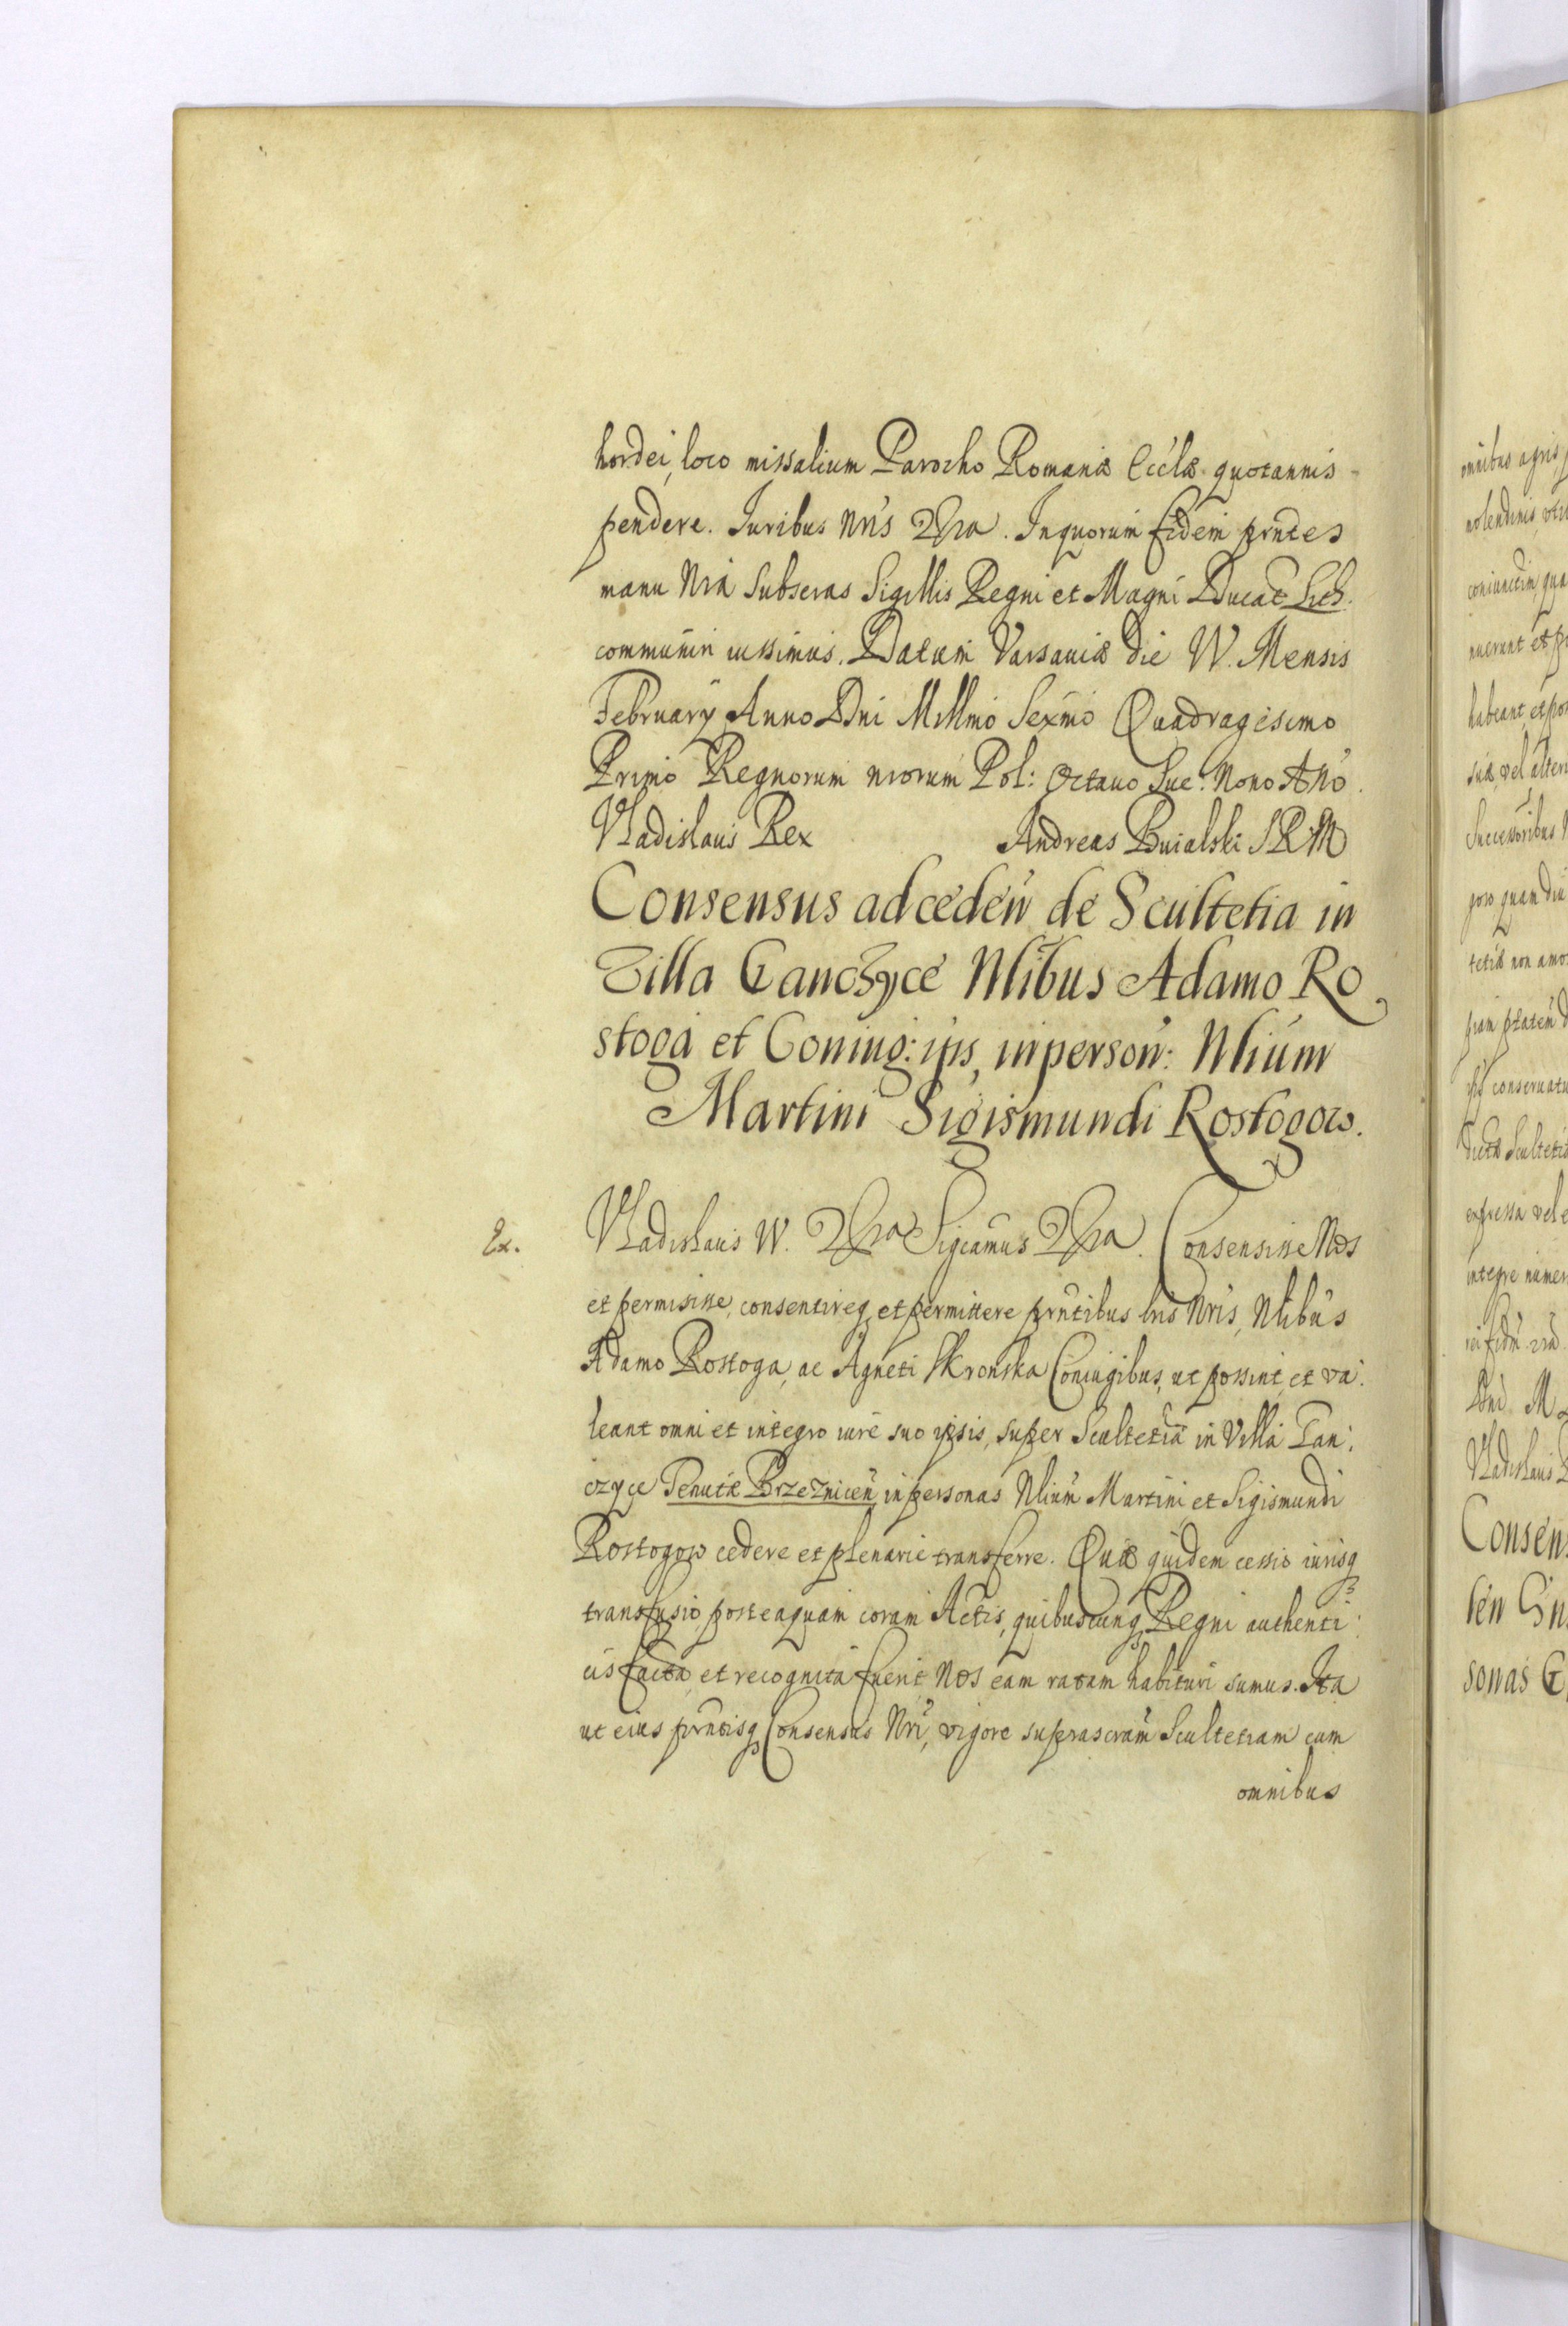 hordei, loco missalium Parocho Romanæ Ecclæ quotannis
pendere. Iuribus Nris &ra. In quorum fidem prntes
manu Nra subscras Sigillis Regni et Magni Ducat Lith.
communiri iussimus. Datum Varsaviæ die IV. Mensis
February Anno Dni Millmo Sexmo Quadragesimo
Primo Regnorum nrorum Pol: Octavo Suc: Nono Ano.
Vladislaus Rex Andreas Buialski SRM
Consensus ad ceden de Scultetia in
Villa Ganczyce Nlibus Adamo Ro
stoga et Coniug: ips, in person: Nlium
Martini Sigismundi Rostogow.
Ex. Vladislaus IV. &ra Sigcamus &ra. Consensisse Nos
et permisisse, consentireq et permittere prntibus lris Nris, Nlibus
Adamo Rostoga, ac Agneti Skronska Coniugibus, ut possint et va:
leant omni et integro iure suo ipsis, super Scultetia in Villa Gan:
czyce Tenutæ Brzeznicen in personas Nlium Martini et Sigismundi
Rostogow cedere et plenarie transferre. Quæ quidem cessio iurisq
transfusio, posteaquam coram Actis, quibuscunq Regni authenti:
cis facta, et recognita fuerit Nos eam ratam habituri sumus. Ita
ut eius prntisq Consensus Nri, vigore suprascram Scultetiam cum
omnibus